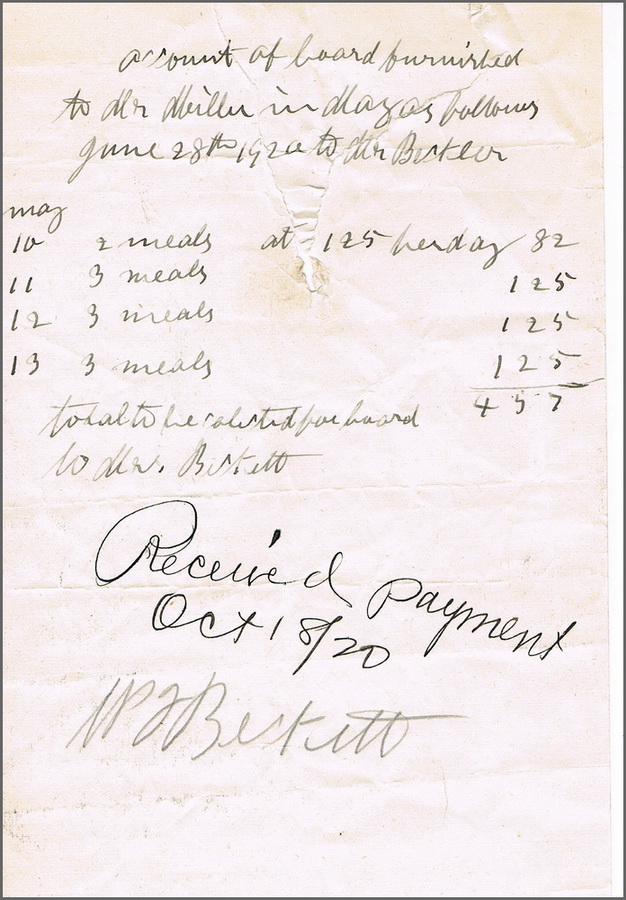 account of board furnished
to Mr Miller in May as follows
June 28th 1920 to Mr
may
10 2 meals at 125 per day 82
11 3 meals 125
12 3 meals 125
13 3 meals 125
457
total to be colected for board
to Mr. Beckett
Received Payment
Oct 18/20
Beckett